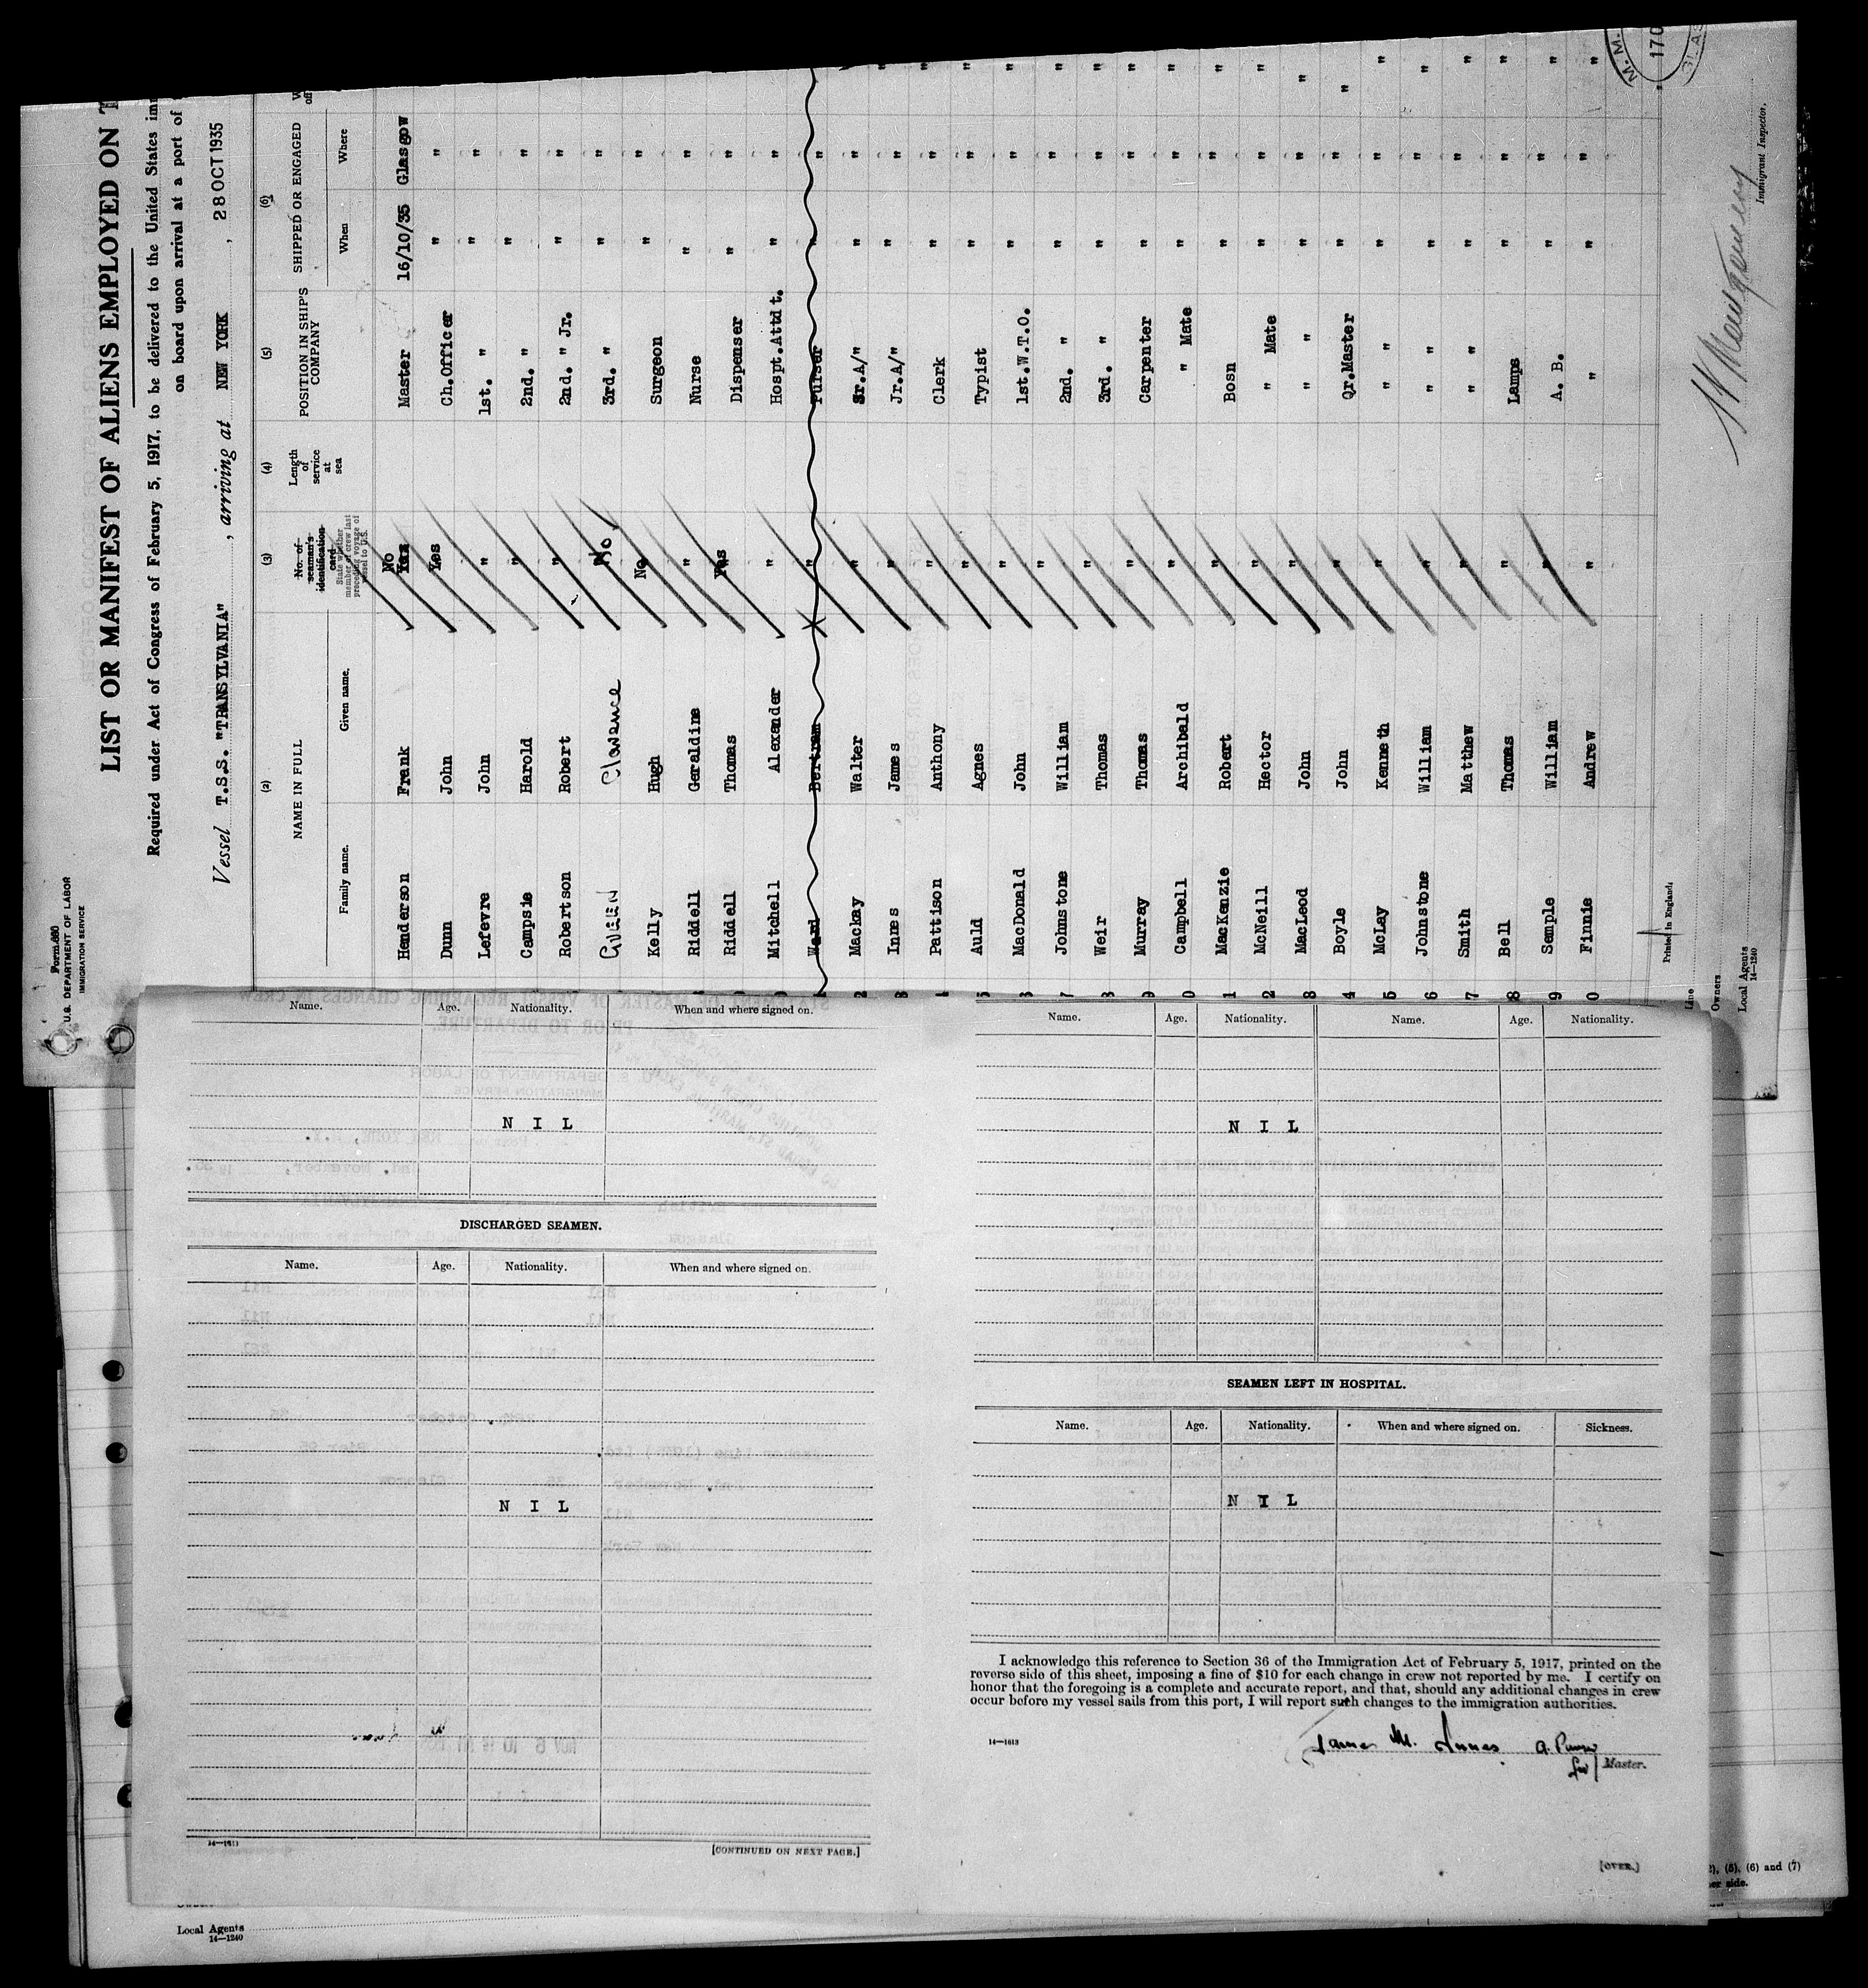 Form 680
U.S. DEPARTMENT OF LABOR
IMMIGRATION SERVICE
LIST OR MANIFEST OF ALIENS EMPLOYED ON
Required under Act of Congress of February 5, 1917, to be delivered to the United States
on board upon arrival at a port of
Vessel T.S.S. "TRANSYLVANIA", arriving at NEW YORK, 28 OCT 1935
(2) (3) (4) (5) (6)
NAME IN FULL
Family name. Given name.
No. of seaman's identification card
State whether member of crew last preceding voyage of vessel to U.S.
Length of service at sea
POSITION IN SHIP'S COMPANY
SHIPPED OR ENGAGED
When Where
Henderson Frank No Yes Master 16/10/35 Glasgow "
Dunn John Yes Ch.Officer " "
Lefevre John " 1st. " " "
Campsie Harold " 2nd. " " "
Robertson Robert " 2nd. " Jr. " "
Clarence No 3rd. " " "
Kelly Hugh No Surgeon " "
Riddell Geraldine " Nurse " "
Riddell Thomas Yes Dispenser " "
Mitchell Alexander " Hospt.Attdt. " "
Ward Bertram " Purser " "
Mackay Walter " Sr.A/" " "
Innes James " Jr.A/" " " "
Pattison Anthony " Clerk " " "
Auld Agnes " Typist " " "
MacDonald John " 1st.W.T.O. " " "
Johnstone William " 2nd. " " " "
Weir Thomas " 3rd. " " " "
Murray Thomas " Carpenter " " "
Campbell Archibald " " Mate " " "
MacKenzie Robert " Bosn " " "
McNeill Hector " " Mate " " "
MacLeod John " " " " " "
Boyle John " Qr.Master " " "
McLay Kenneth " " " " "
Johnstone William " " " " "
Smith Matthew " " " " "
Bell Thomas " Lamps " " "
Semple William " A. B. " " "
Finnie Andrew " " " " "
Immigrant Inspector.
Printed in England.
Line
Owners
Local Agents
14—1240
M.M.
170
Name. Age. Nationality. When and where signed on.
N I L
DISCHARGED SEAMEN.
Name. Age. Nationality. When and where signed on.
N I L
14—1613
[CONTINUED ON NEXT PAGE.]
Name. Age. Nationality. Name. Age. Nationality.
N I L
SEAMEN LEFT IN HOSPITAL.
Name. Age. Nationality. When and where signed on. Sickness.
N I L
I acknowledge this reference to Section 36 of the Immigration Act of February 5, 1917, printed on the
reverse side of this sheet, imposing a fine of $10 for each change in crew not reported by me. I certify on
honor that the foregoing is a complete and accurate report, and that, should any additional changes in crew
occur before my vessel sails from this port, I will report such changes to the immigration authorities.
14—1613
James M. Innes A. Purser
for Master.
[OVER.]
(5), (6) and (7)
side.
Local Agents
14—1240